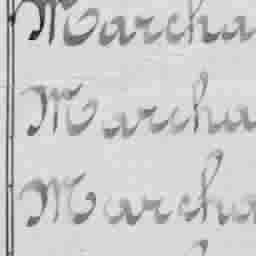 Marcha
Marcha
Marcha